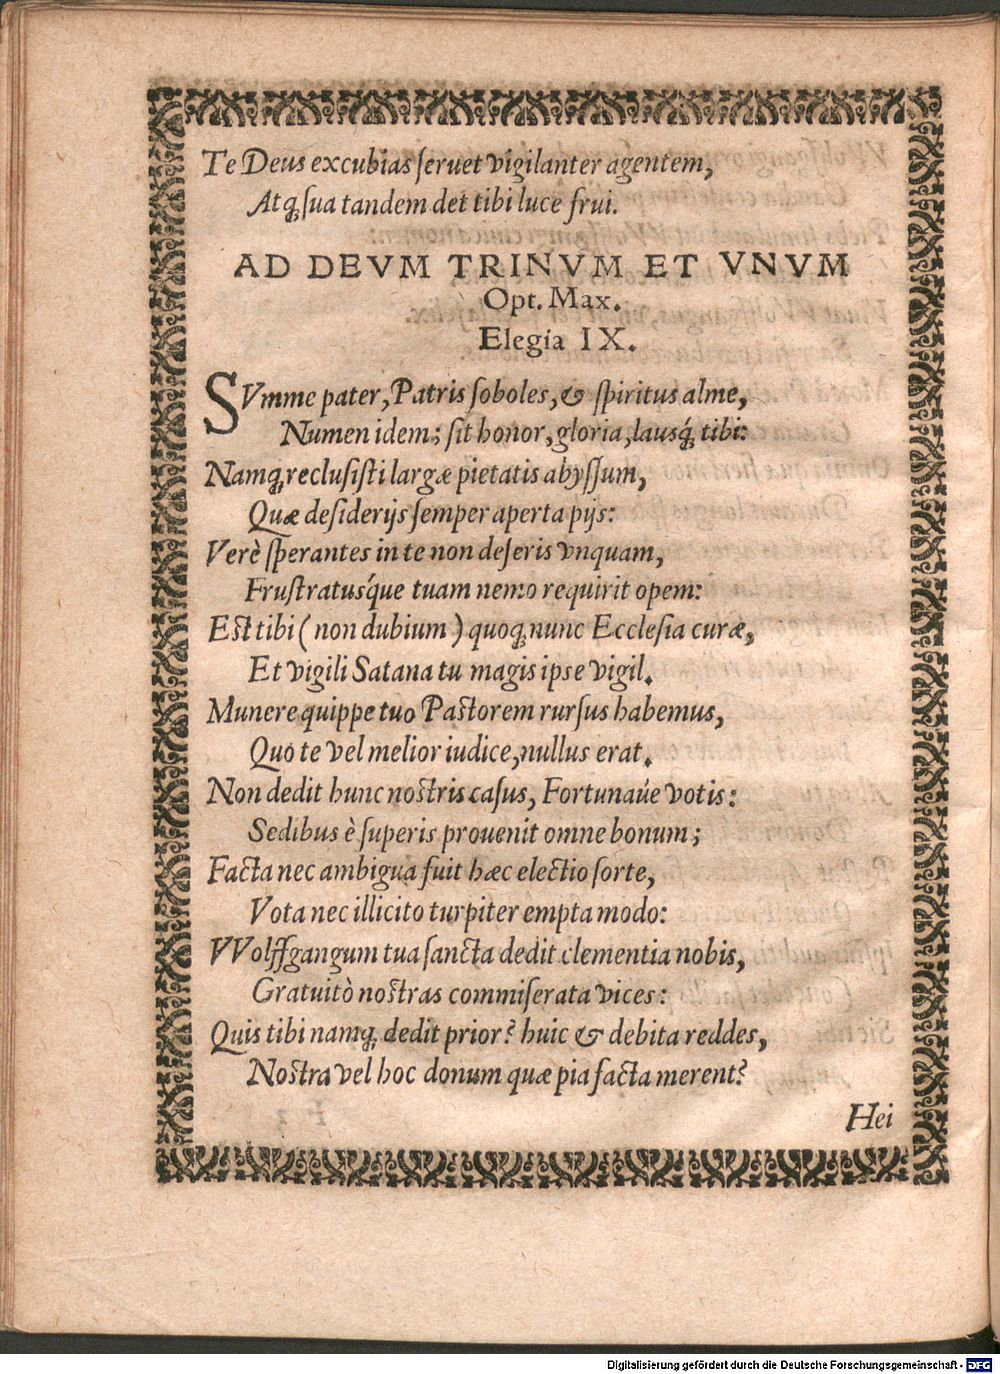 Te Deus excubias seruet vigilanter agentem,
Atq́; sua tandem det tibi luce frui.
AD DEVM TRINVM ET VNVM
Opt. Max.
Elegia IX.
SVmme pater, Patris soboles, & spiritus alme,
Numen idem; sit honor, gloria, lausq́; tibi:
Namq; reclusisti largæ pietatis abyssum,
Quæ desiderijs semper aperta pijs:
Verè sperantes in te non deseris vnquam,
Frustratusq́ue tuam nemo requirit opem:
Est tibi (non dubium) quoq; nunc Ecclesia curæ,
Et vigili Satana tu magis ipse vigil.
Munere quippe tuo Pastorem rursus habemus,
Quo te vel melior iudice, nullus erat.
Non dedit hunc nostris casus, Fortunaúe votis:
Sedibus è superis prouenit omne bonum;
Facta nec ambigua fuit hæc electio sorte,
Vota nec illicito turpiter empta modo:
VVolffgangum tua sancta dedit clementia nobis,
Gratuitò nostras commiserata vices:
Quis tibi namq; dedit prior? huic & debita reddes,
Nostra vel hoc donum quæ pia facta merent?
Hei
Digitalisierung gefördert durch die Deutsche Forschungsgemeinschaft - DFG